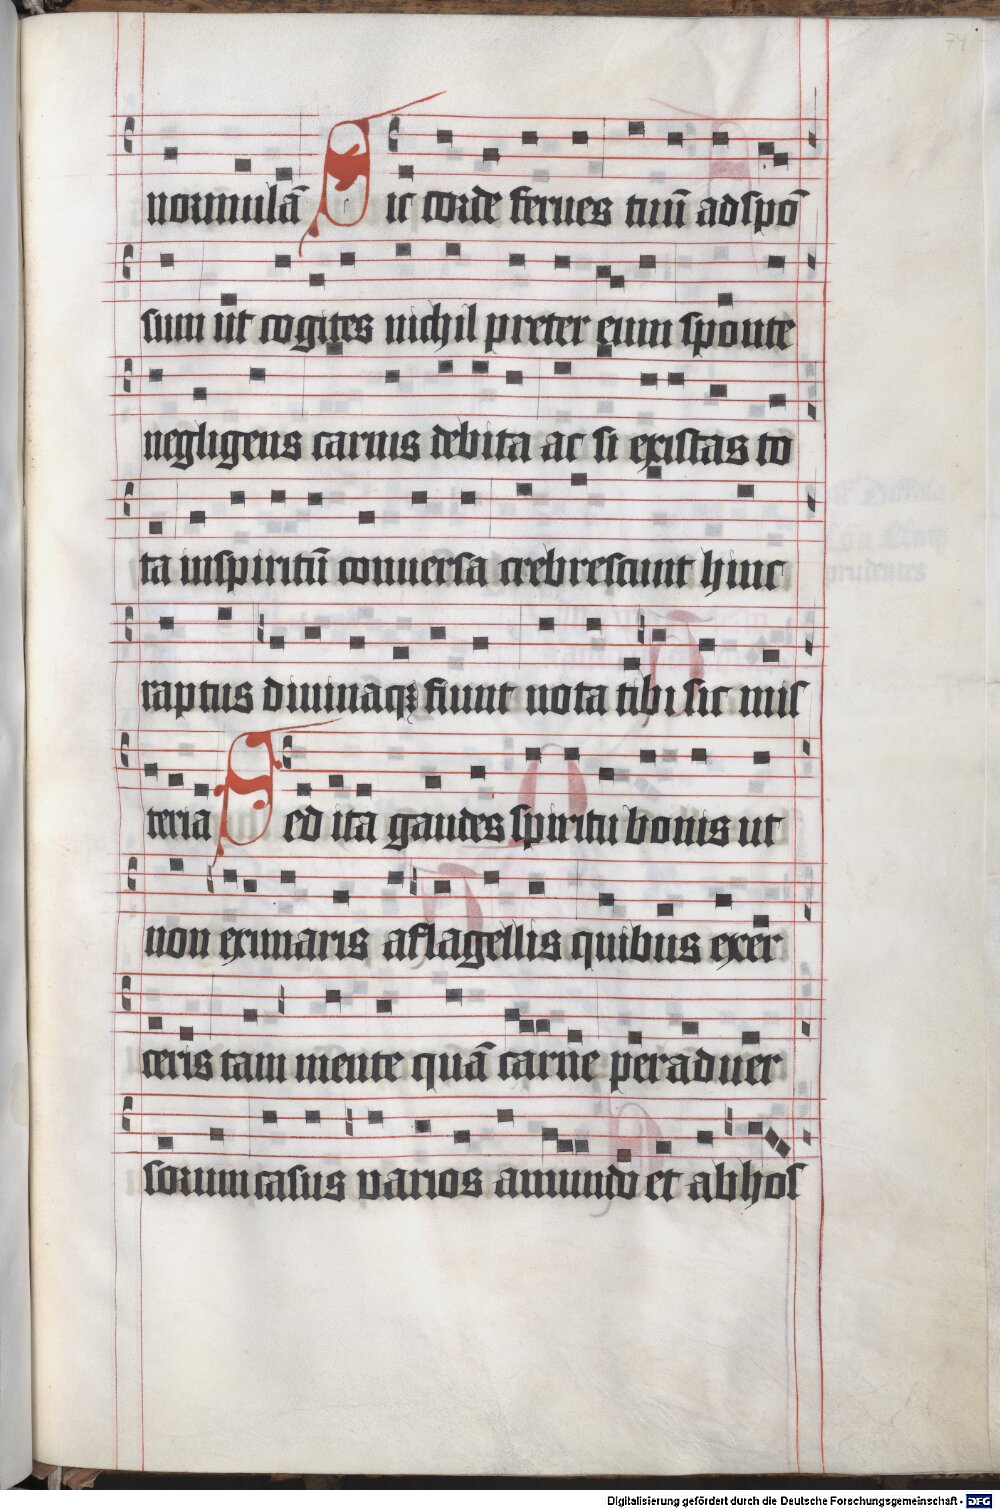 74
normulā Sic corde ferues tuū ad spō
sum ut cogites nichil preter eum sponte
negligens carnis debita ac si existas to
ta inspiritū conuersa crebrescunt hinc
raptus diuinaqꝫ fiunt nota tibi sic mis
teria Sed ita gaudes spiritu bonis ut
non eximaris a flagellis quibus exer
ceris tam mente quā carne per aduer
sorum casus varios amundo et ab hos
Digitalisierung gefördert durch die Deutsche Forschungsgemeinschaft - DFG